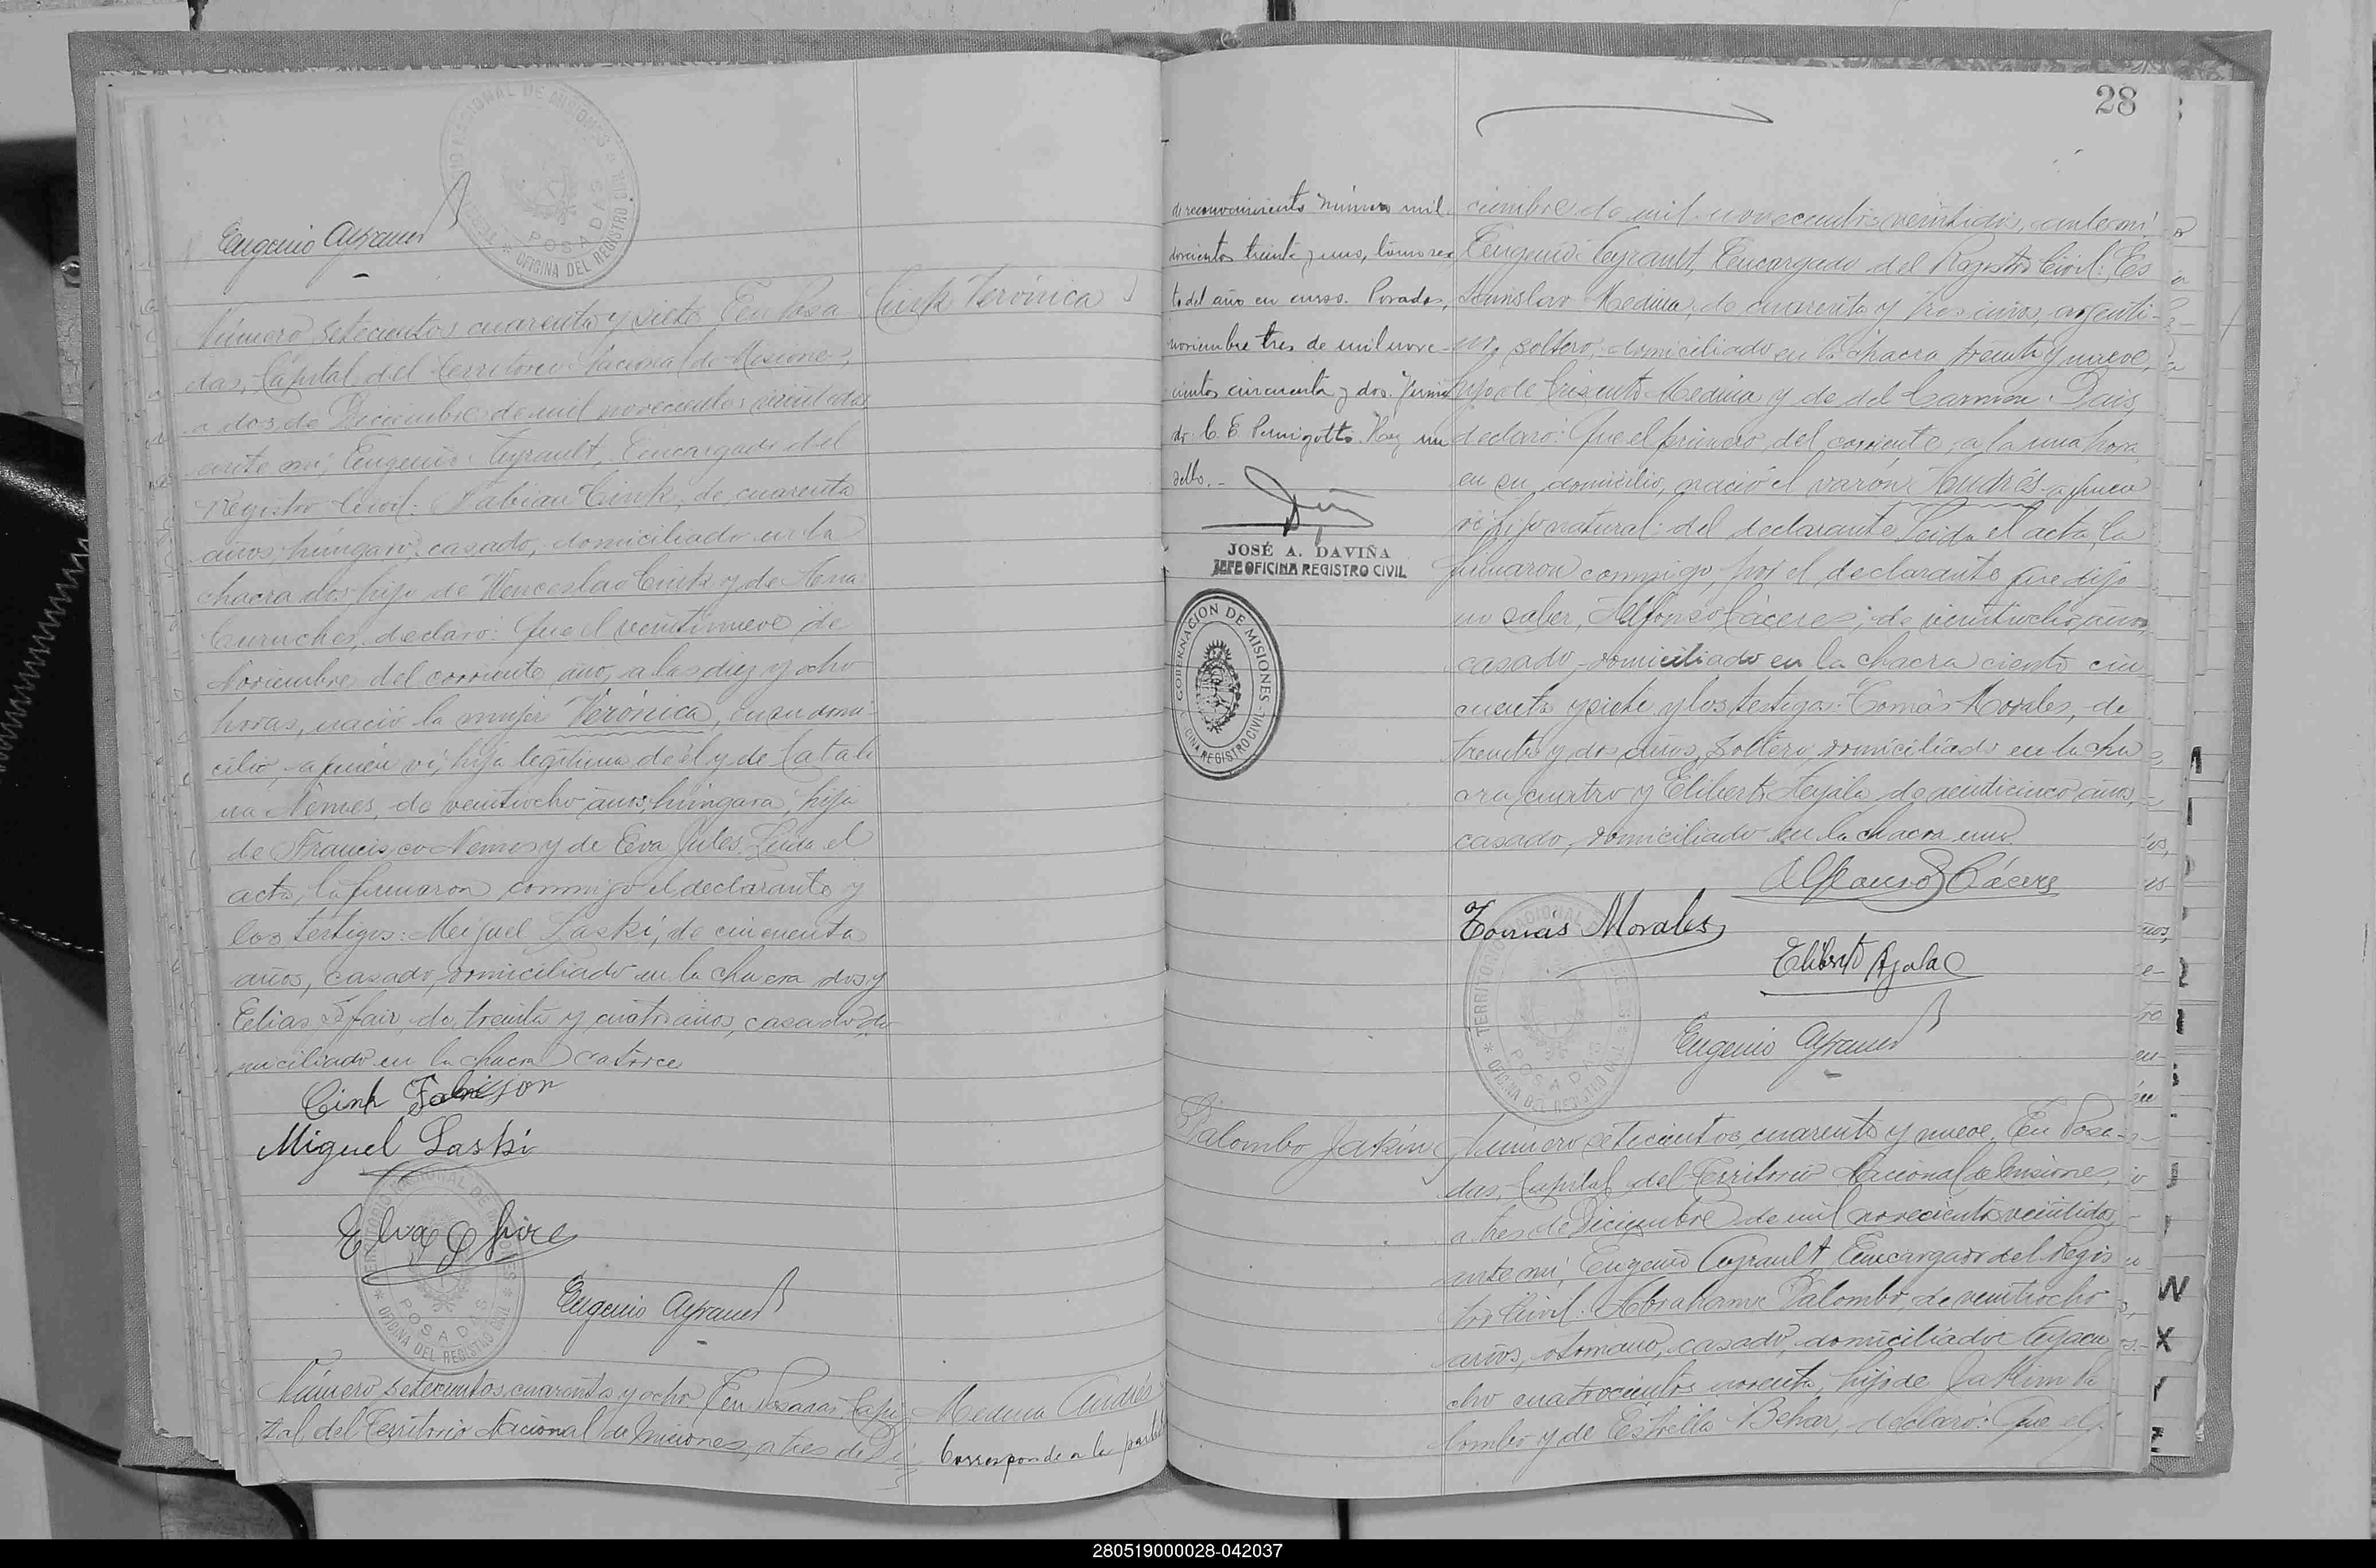 TERRITORIO NACIONAL DE MISIONES * OFICINA DEL REGISTRO CIVIL * POSADAS
Eugenio Ayrault
Cink Verónica
Número setecientos cuarenta y siete. En Posa
das, Capital del Territorio Nacional de Misiones,
a dos de Diciembre de mil novecientos veintidos
ante mi, Eugenio Ayrault, Encargado del
Registro Civil: Fabian Cink, de cuarenta
años, húngaro, casado, domiciliado en la
chacra dos, hijo de Wenceslao Cink y de Ana
declaró: Que el veintinueve de
Noviembre del corriente año, a las diez y ocho
horas, nació la mujer Verónica, en su domi
cilio, a quien ví, hija legítima de él y de Catali
na Nemes, de veintiocho años, húngara, hija
de Francisco Nemes y de Eva Jules. Leida el
acta, la firmaron conmigo el declarante y
los testigos: Miguel Laski, de cincuenta
años, casado, domiciliado en la chacra dos y
Elias de treinta y cuatro años, casado, do
miciliado en la chacra catorce
Cink Fabijan
Miguel Laski
TERRITORIO NACIONAL DE MISIONES * OFICINA DEL REGISTRO CIVIL * POSADAS
Eugenio Ayrault
Número setecientos cuarenta y ocho. En Posadas, Capi
tal del Territorio Nacional de Misiones, a tres de Di
Medina Andrés
Corresponde a la partida
28
de reconocimiento número mil
doscientos treinta y uno, tomo sex
to del año en curso. Posadas,
noviembre tres de mil nove-
cientos cincuenta y dos. Firma
do: C. E. Pernigotti. Hay un
sello.-
JOSÉ A. DAVIÑA
JEFE OFICINA REGISTRO CIVIL
GOBERNACION DE MISIONES OFICINA REGISTRO CIVIL
ciembre de mil novecientos veintidos, ante mi
Eugenio Ayrault, Encargado del Registro Civil: Es
tanislao Medina, de cuarenta y tres años, argenti-
no, soltero, domiciliado en la chacra treinta y nueve,
hijo de Medina y de del Carmen Pais,
declaró: Que el primero del corriente, a la una hora,
en su domicilio, nació el varón Andrés a quien
ví, hijo natural del declarante. Leida el acta, la
firmaron conmigo, por el declarante que dijo
no saber, Alfonso Cáceres, de veintiocho años,
casado, domiciliado en la chacra ciento cin
cuenta y siete y los testigos: Tomás Morales, de
treinta y dos años, soltero, domiciliado en la cha
cra cuatro y Eliberto Ayala de veinticinco años,
casado, domiciliado en la chacra uno.
Alfonso Cáceres
Tomás Morales
Eliberto Ayala
TERRITORIO NACIONAL DE MISIONES * OFICINA DEL REGISTRO CIVIL * POSADAS
Eugenio Ayrault
Palombo Jakin
Número setecientos cuarenta y nueve. En Posa-
das, Capital del Territorio Nacional de Misiones,
a tres de Diciembre de mil novecientos veintidos,
ante mi, Eugenio Ayrault, Encargado del Regis
tro Civil: Abraham Palombo, de veintiocho
años, otomano, casado, domiciliado Ayacu
cho cuatrocientos noventa, hijo de Jakim Pa
lombo y de Estrella Behar, declaró: Que el
W
X
Y
Z
280519000028-042037